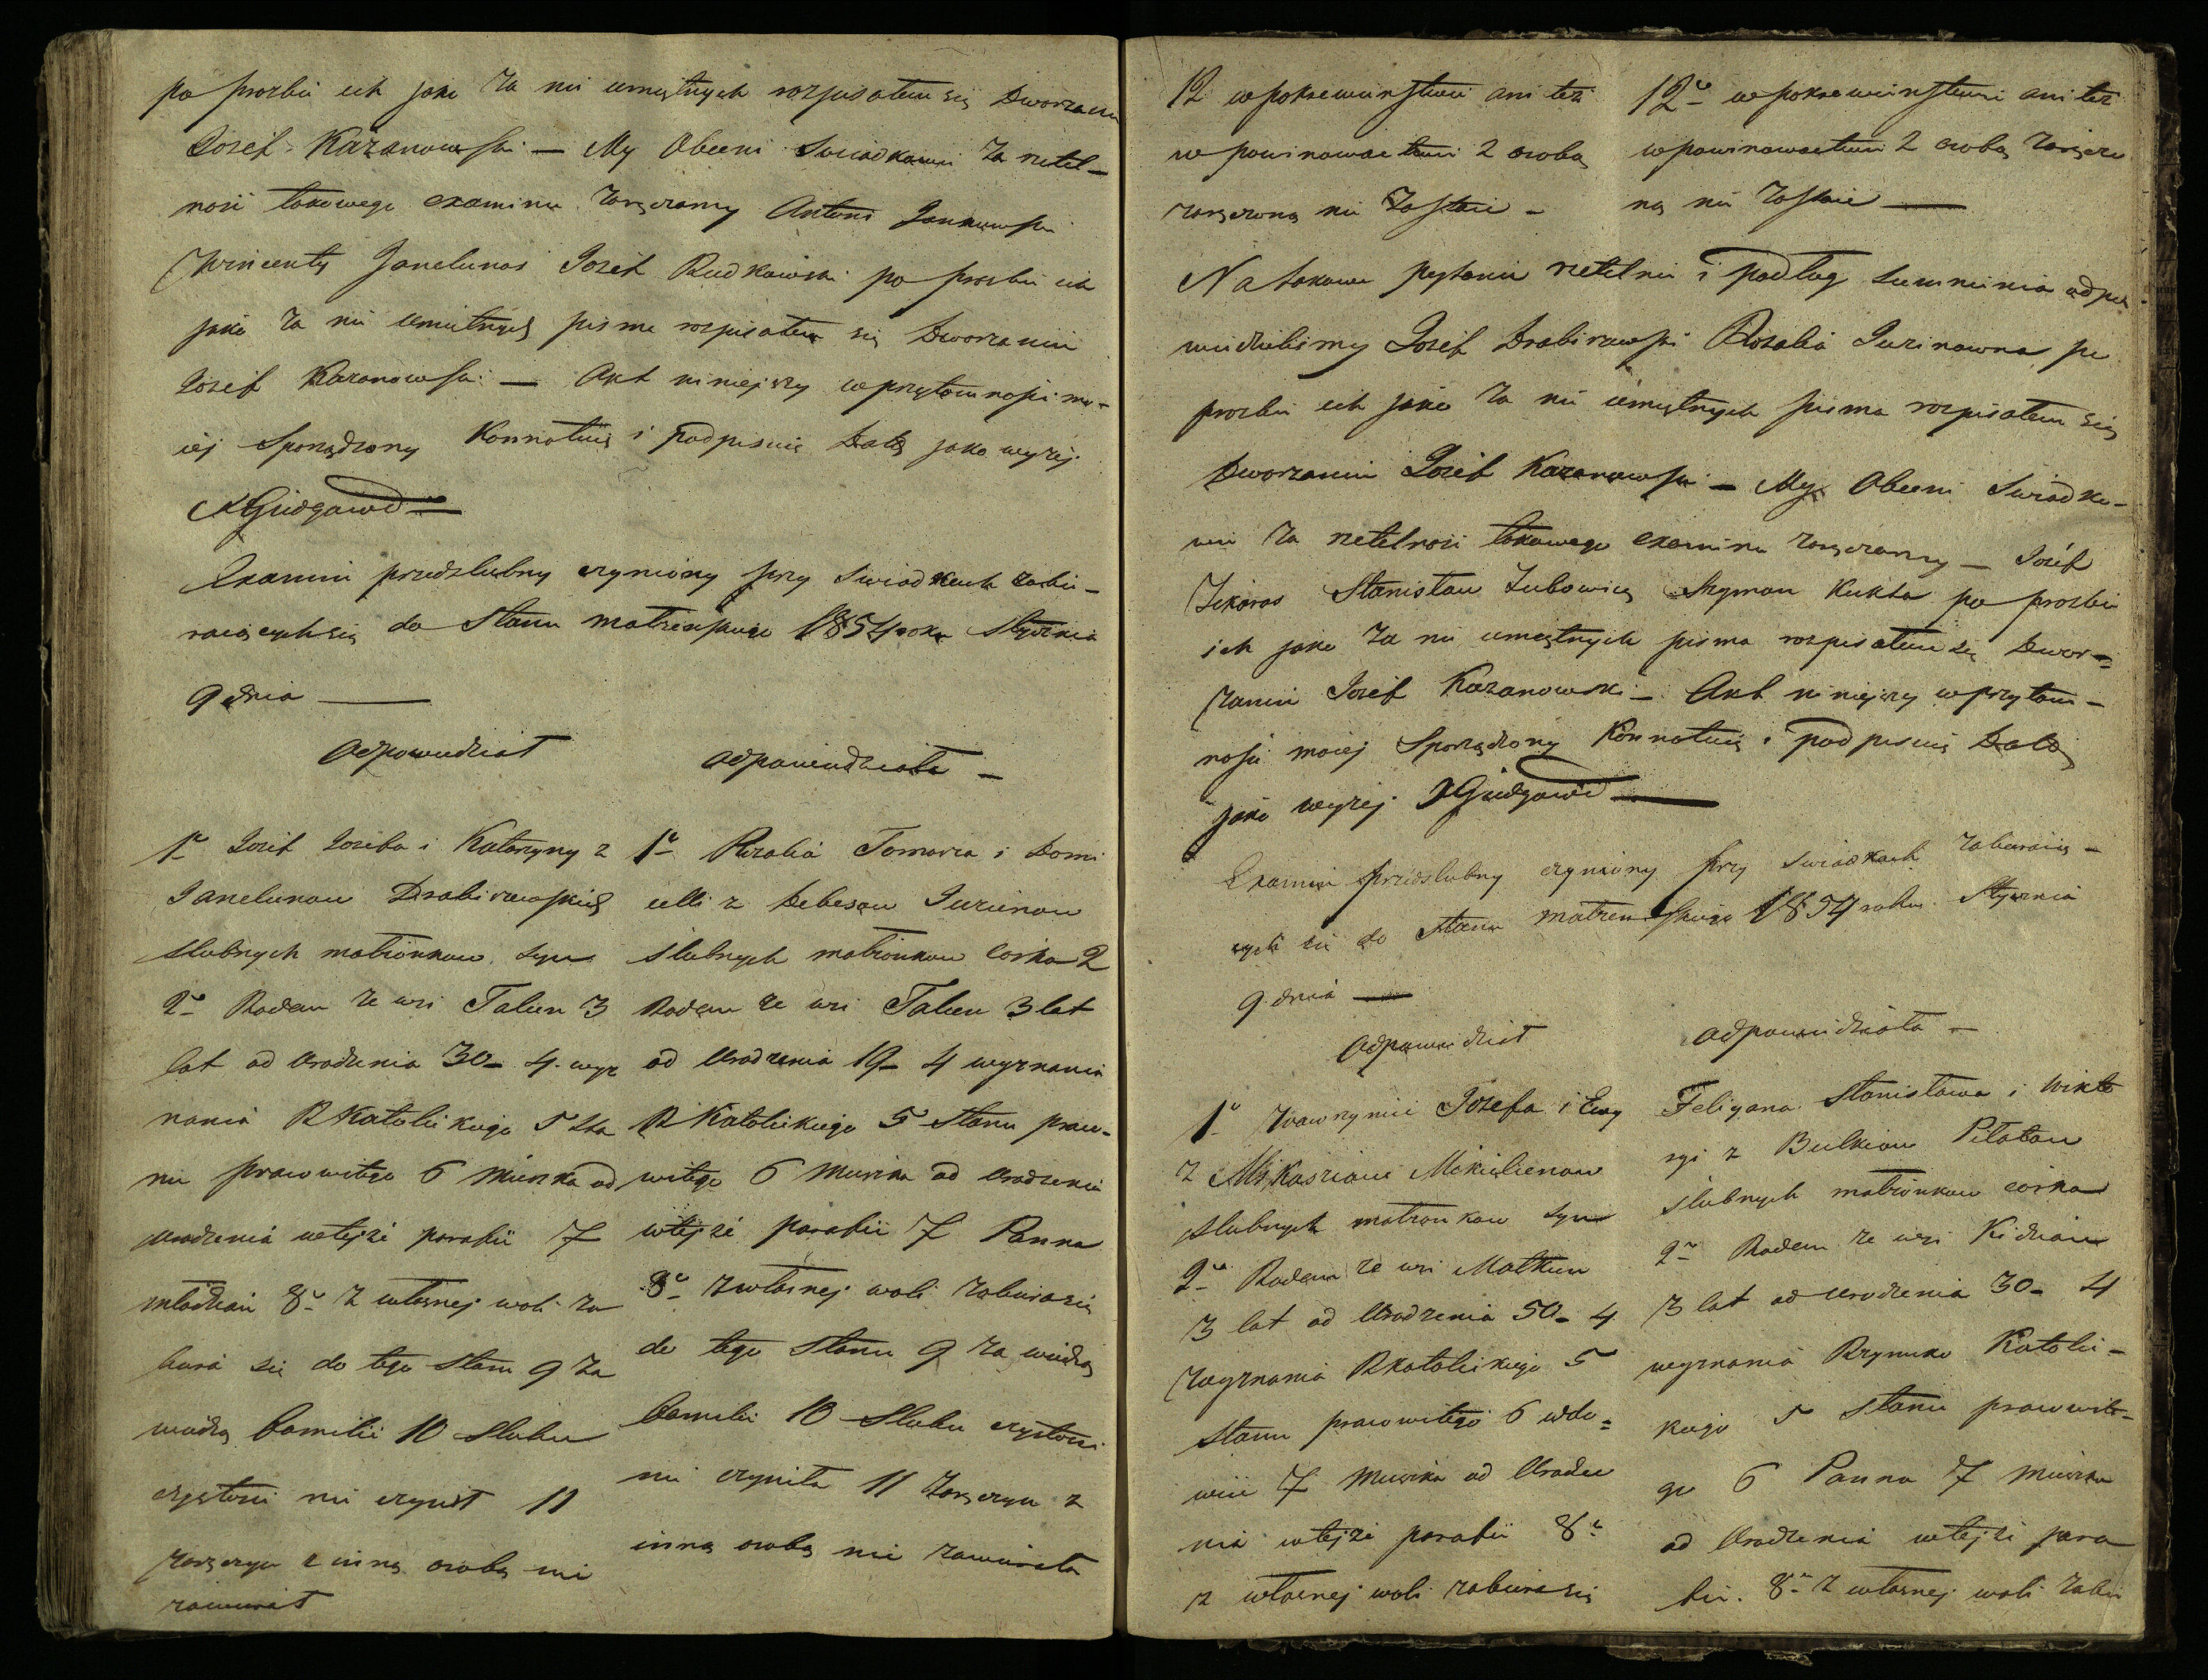 po prozbie ich jako za nie umiętnych rozpisałem się Dworzanin
Jozef Kazanowski — My Obecni Swiadkowie za rzetel-
nosć takowego examinu zaręczamy Antoni Jankowski
Wincenty Janelunas Jozef Rudkowski po prozbie ich
jako za nie umiętnych pisma rozpisałem się Dworzanin
Jozef Kazanowski — Akt niniejszy w przytomnosci mo-
iej Sporządzony Konnotuię i podpisuię Datą jako wyżej
Examin przedslubny czyniony przy Swiadkach zabie-
raiących się do Stanu małżenskiego 1854 roku Stycznia
9 dnia —
Odpowiedział
odpowiedziała —
1o Jozef Jozefa i Katarzyny z
Janelunow Drabizewskich
slubnych małżonkow syn
2o Rodem ze wsi Talun 3
lat od Urodzenia 30 - 4. wyz
nania R Katolickiego 5 Sta
nu prawowitego 6 Mieszka od
urodzenia w tejże parafii 7
młodzian 8o z własnej woli za
biera sie do tego Stanu 9 za
wiedzą familii 10 Slubu
czystosci nie czynił 11
zaręczyn z inną osobą nie
zawierał
1o Rozalia Tomasza i Domi
celli z Debesow Jurienow
slubnych małżonkow corka 2
Rodem ze wsi Talun 3 lat
od Urodzenia 19 - 4 wyznania
R Katolickiego 5 Stanu prawo-
witego 6 Mieszka od Urodzenia
w tejże parafii 7 Panna
8o z własnej woli zabiera się
do tego Stanu 9 za wiedzą
familii 10 Slubu czystosci
nie czyniła 11 Zaręczyn z
inną osobą nie zawierała
12 w pokrewienstwie ani też
w powinowactwie z osobą
zaręczoną nie zostaie —
12o w pokrewienstwie ani też
w powinowactwie z osobą zaręczo
ną nie zostaie —
Na takowe pytania rzetelnie i podług sumnienia odpo-
wiedzielismy Jozef Drabizewski Rozalia Jurinowna po
prozbie ich jako za nie umiętnych pisma rozpisałem się
Dworzanin Jozef Kazanowski — My Obecni Swiadko-
wie za rzetelnosć takowego examinu zaręczamy — Jozef
Stanisław Zubowicz Szymon Kukta po prozbie
ich jako za nie umiętnych pisma rozpisałem się Dwor-
zanin Jozef Kazanowski — Akt niniejszy w przytom-
nosci moiej Sporządzony Konnotuię i podpisuię Datą
jako wyżej
Examin przedslubny czyniony przy Swiadkach zabieraią-
cych sie do Stanu małżenskiego 1854 roku Stycznia
9 dnia —
Odpowiedział
odpowiedziała —
1o Wawrzyniec Jozefa i Ewy
z Mikaszow Mikielienow
slubnych małżonkow syn
2o Rodem ze wsi Małkun
3 lat od Urodzenia 50 - 4
Wyznania R Katolickiego 5
Stanu prawowitego 6 wdo-
wiec 7 Mieszka od Urodze
nia w tejże parafii 8o
z własnej woli zabiera się
Felicyana Stanisława i Wikto
ryi z Bulkow Piłatow
slubnych małżonkow corka
2o Rodem ze wsi Kidzian
3 lat od Urodzenia 30 - 4
wyznania Rzymsko Katolic-
kiego 5 Stanu prawowite-
go 6 Panna 7 Mieszka
od Urodzenia w tejże para
fii. 8o z własnej woli zabie